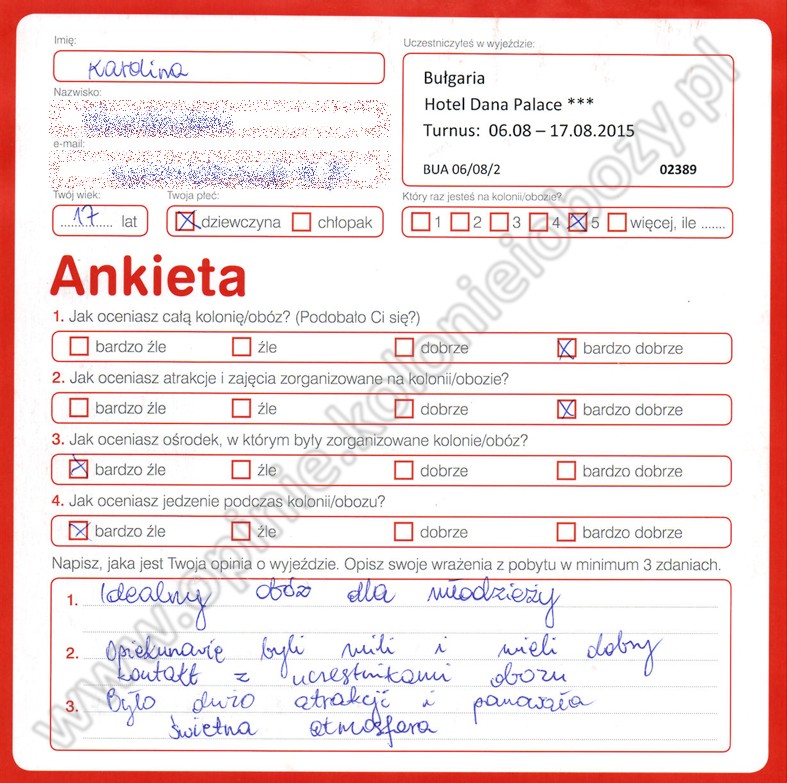 Imię:
Karolina
Uczestniczyłeś w wyjeździe:
Bułgaria
Hotel Dana Palace ***
Turnus: 06.08 – 17.08.2015
BUA 06/08/2 02389
Nazwisko:
e-mail:
Twój wiek:
17 lat
Twoja płeć:
dziewczyna chłopak
Który raz jesteś na kolonii/obozie?
1 2 3 4 5 więcej, ile .......
Ankieta
1. Jak oceniasz całą kolonię/obóz? (Podobało Ci się?)
bardzo źle źle dobrze bardzo dobrze
2. Jak oceniasz atrakcje i zajęcia zorganizowane na kolonii/obozie?
bardzo źle źle dobrze bardzo dobrze
3. Jak oceniasz ośrodek, w którym były zorganizowane kolonie/obóz?
bardzo źle źle dobrze bardzo dobrze
4. Jak oceniasz jedzenie podczas kolonii/obozu?
bardzo źle źle dobrze bardzo dobrze
Napisz, jaka jest Twoja opinia o wyjeździe. Opisz swoje wrażenia z pobytu w minimum 3 zdaniach.
1. Idealny obóz dla młodzieży
2. Opiekunowie byli mili i mieli dobry
kontakt z uczestnikami obozu
3. Było dużo atrakcji i panowała
świetna atmosfera
www.opinie.kolonieiobozy.pl